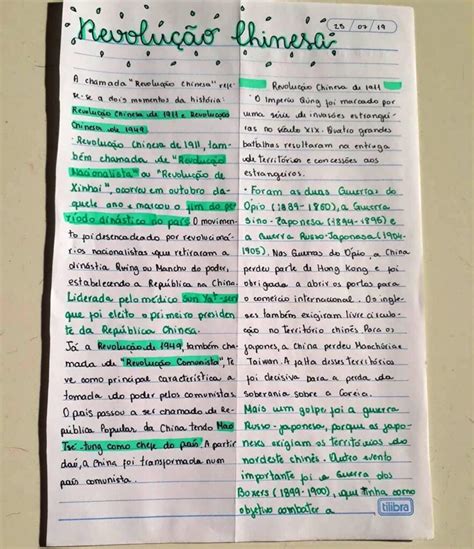 Revolução Chinesa
25 / 07 / 19
A chamada "Revolução Chinesa" refe-
se-se a dois momentos da história:
Revolução Chinesa de 1911 e Revolução
Chinesa de 1949.
Revolução Chinesa de 1911, tam-
bém chamada de "Revolução
Nacionalista" ou "Revolução de
Xinhai", ocorreu em outubro da-
quele ano e marcou o fim do pe-
ríodo dinástico no país. O movimen-
to foi desencadeado por revolucioná-
rios nacionalistas que retiraram a
dinastia Ruing ou Manchu do poder,
estabelecendo a República na China.
Liderada pelo médico Sun Yat-sen
que foi eleito o primeiro presiden-
te da República Chinesa.
Já a Revolução de 1949, também cha-
mada de "Revolução Comunista", te-
ve como principal característica a
tomada do poder pelos comunistas.
O país passou a ser chamado de Re-
pública Popular da China tendo Mao
Tsé-tung como chefe do país. A partir
daí, a China foi transformada num
país comunista.
Revolução Chinesa de 1911
O Império Qing foi marcado por
uma série de invasões estrangei-
ras no século XIX. Quatro grandes
batalhas resultaram na entrega
de territórios e concessões aos
estrangeiros.
Foram as duas Guerras do
Ópio (1839-1860), a Guerra
Sino-Japonesa (1894-1895) e
a Guerra Russo-Japonesa (1904-
1905). Nas Guerras do Ópio, a China
perdeu parte de Hong Kong e foi
obrigada a abrir os portos para
o comércio internacional. Os ingle-
ses também exigiram livre circula-
ção no território chinês. Para os
japoneses, a China perdeu Manchúria e
Taiwan. A falta desses territórios
foi decisiva para a perda da
soberania sobre a Coreia.
Mais um golpe foi a guerra
Russo-japonesa, porque os japo-
neses exigiam os territórios do
nordeste chinês. Outro evento
importante foi a Guerra dos
Boxers (1899-1900), que tinha como
objetivo combater a
tilibra